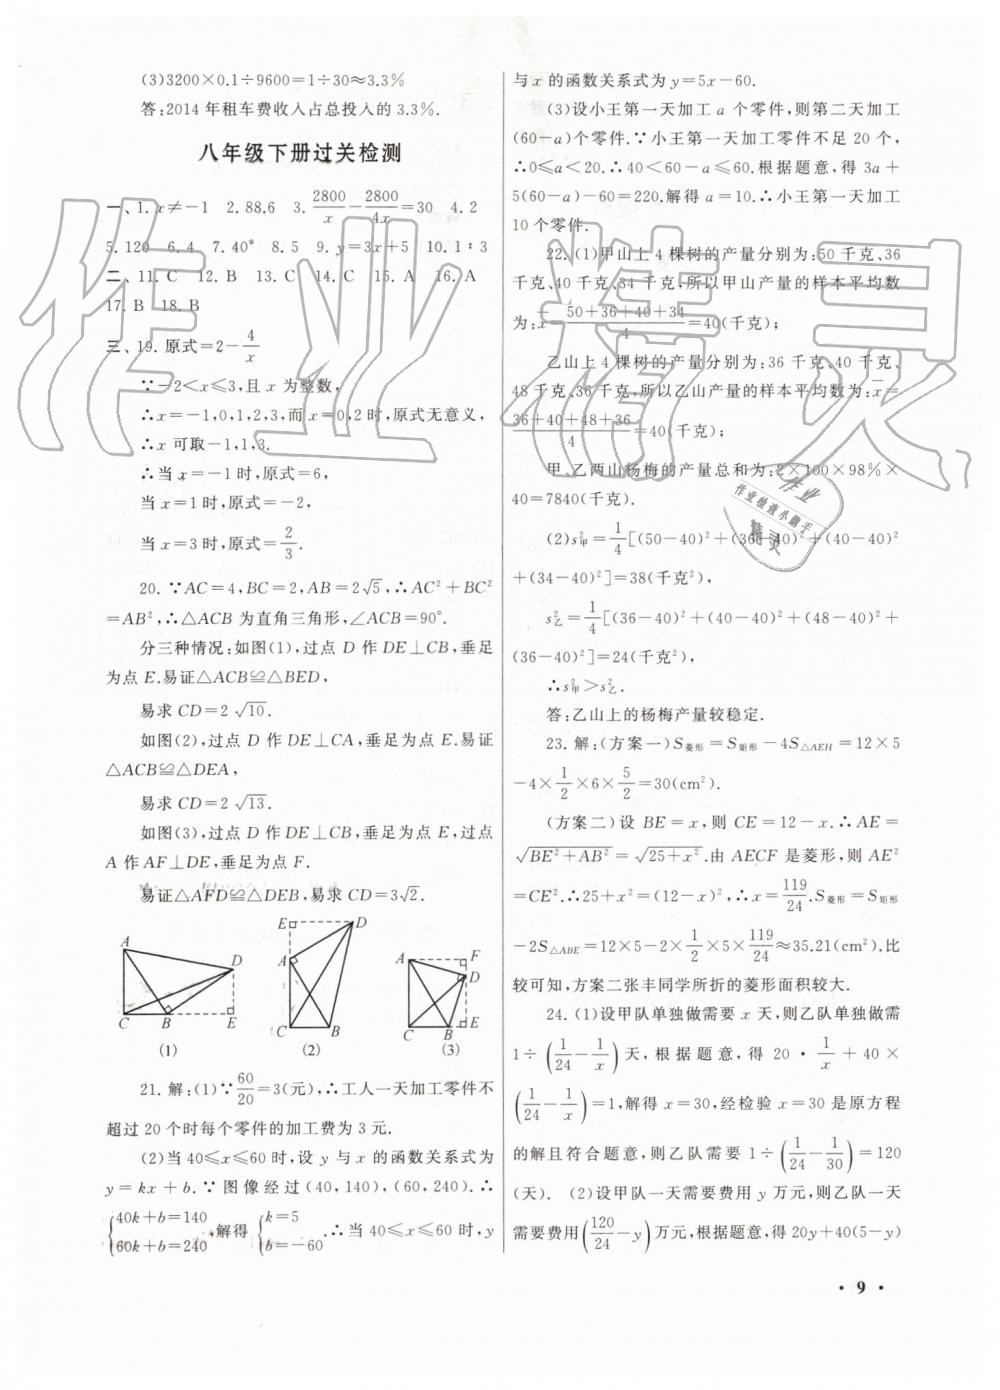 (3)3200×0.1÷9600=1÷30≈3.3%
答:2014 年租车费收入占总投入的 3.3%.
八年级下册过关检测
一、1. x≠-1 2. 88.6 3. 2800/x - 2800/4x = 30 4. 2
5. 120 6. 4 7. 40° 8. 5 9. y=3x+5 10. 1∶3
二、11. C 12. B 13. C 14. C 15. A 16. A
17. B 18. B
三、19. 原式=2-4/x
∵-2<x≤3,且 x 为整数,
∴x=-1,0,1,2,3,而 x=0,2 时,原式无意义,
∴x 可取-1,1,3.
∴当 x=-1 时,原式=6,
当 x=1 时,原式=-2,
当 x=3 时,原式=2/3.
20. ∵AC=4,BC=2,AB=2√5,∴AC²+BC²
=AB²,∴△ACB 为直角三角形,∠ACB=90°.
分三种情况:如图(1),过点 D 作 DE⊥CB,垂足
为点 E.易证△ACB≌△BED,
易求 CD=2√10.
如图(2),过点 D 作 DE⊥CA,垂足为点 E.易证
△ACB≌△DEA,
易求 CD=2√13.
如图(3),过点 D 作 DE⊥CB,垂足为点 E,过点
A 作 AF⊥DE,垂足为点 F.
易证△AFD≌△DEB,易求 CD=3√2.
A D C B E
(1)
E D A C B
(2)
A F D C B E
(3)
21. 解:(1)∵60/20=3(元),∴工人一天加工零件不
超过 20 个时每个零件的加工费为 3 元.
(2)当 40≤x≤60 时,设 y 与 x 的函数关系式为
y=kx+b.∵图像经过(40,140),(60,240).∴
{40k+b=140 60k+b=240,解得{k=5 b=-60.∴当 40≤x≤60 时,y
与 x 的函数关系式为 y=5x-60.
(3)设小王第一天加工 a 个零件,则第二天加工
(60-a)个零件.∵小王第一天加工零件不足 20 个,
∴0≤a<20.∴40<60-a≤60.根据题意,得 3a+
5(60-a)-60=220.解得 a=10.∴小王第一天加工
10 个零件.
22. (1)甲山上 4 棵树的产量分别为:50 千克、36
千克、40 千克、34 千克,所以甲山产量的样本平均数
为:x̄=(50+36+40+34)/4=40(千克);
乙山上 4 棵树的产量分别为:36 千克、40 千克、
48 千克、36 千克,所以乙山产量的样本平均数为:x̄=
(36+40+48+36)/4=40(千克);
甲、乙两山杨梅的产量总和为:2×100×98%×
40=7840(千克).
(2)s²甲=1/4[(50-40)²+(36-40)²+(40-40)²
+(34-40)²]=38(千克²),
s²乙=1/4[(36-40)²+(40-40)²+(48-40)²+
(36-40)²]=24(千克²).
∴s²甲>s²乙.
答:乙山上的杨梅产量较稳定.
23. 解:(方案一)S菱形=S矩形-4S△AEH=12×5
-4×1/2×6×5/2=30(cm²).
(方案二)设 BE=x,则 CE=12-x.∴AE=
√(BE²+AB²)=√(25+x²).由 AECF 是菱形,则 AE²
=CE².∴25+x²=(12-x)²,∴x=119/24.S菱形=S矩形
-2S△ABE=12×5-2×1/2×5×119/24≈35.21(cm²).比
较可知,方案二张丰同学所折的菱形面积较大.
24. (1)设甲队单独做需要 x 天,则乙队单独做需
1÷(1/24-1/x)天,根据题意,得 20·1/x+40×
(1/24-1/x)=1,解得 x=30,经检验 x=30 是原方程
的解且符合题意,则乙队需要 1÷(1/24-1/30)=120
(天). (2)设甲队一天需要费用 y 万元,则乙队一天
需要费用(120/24-y)万元,根据题意,得 20y+40(5-y)
· 9 ·
作业精灵
作业
作业检查小助手
精灵